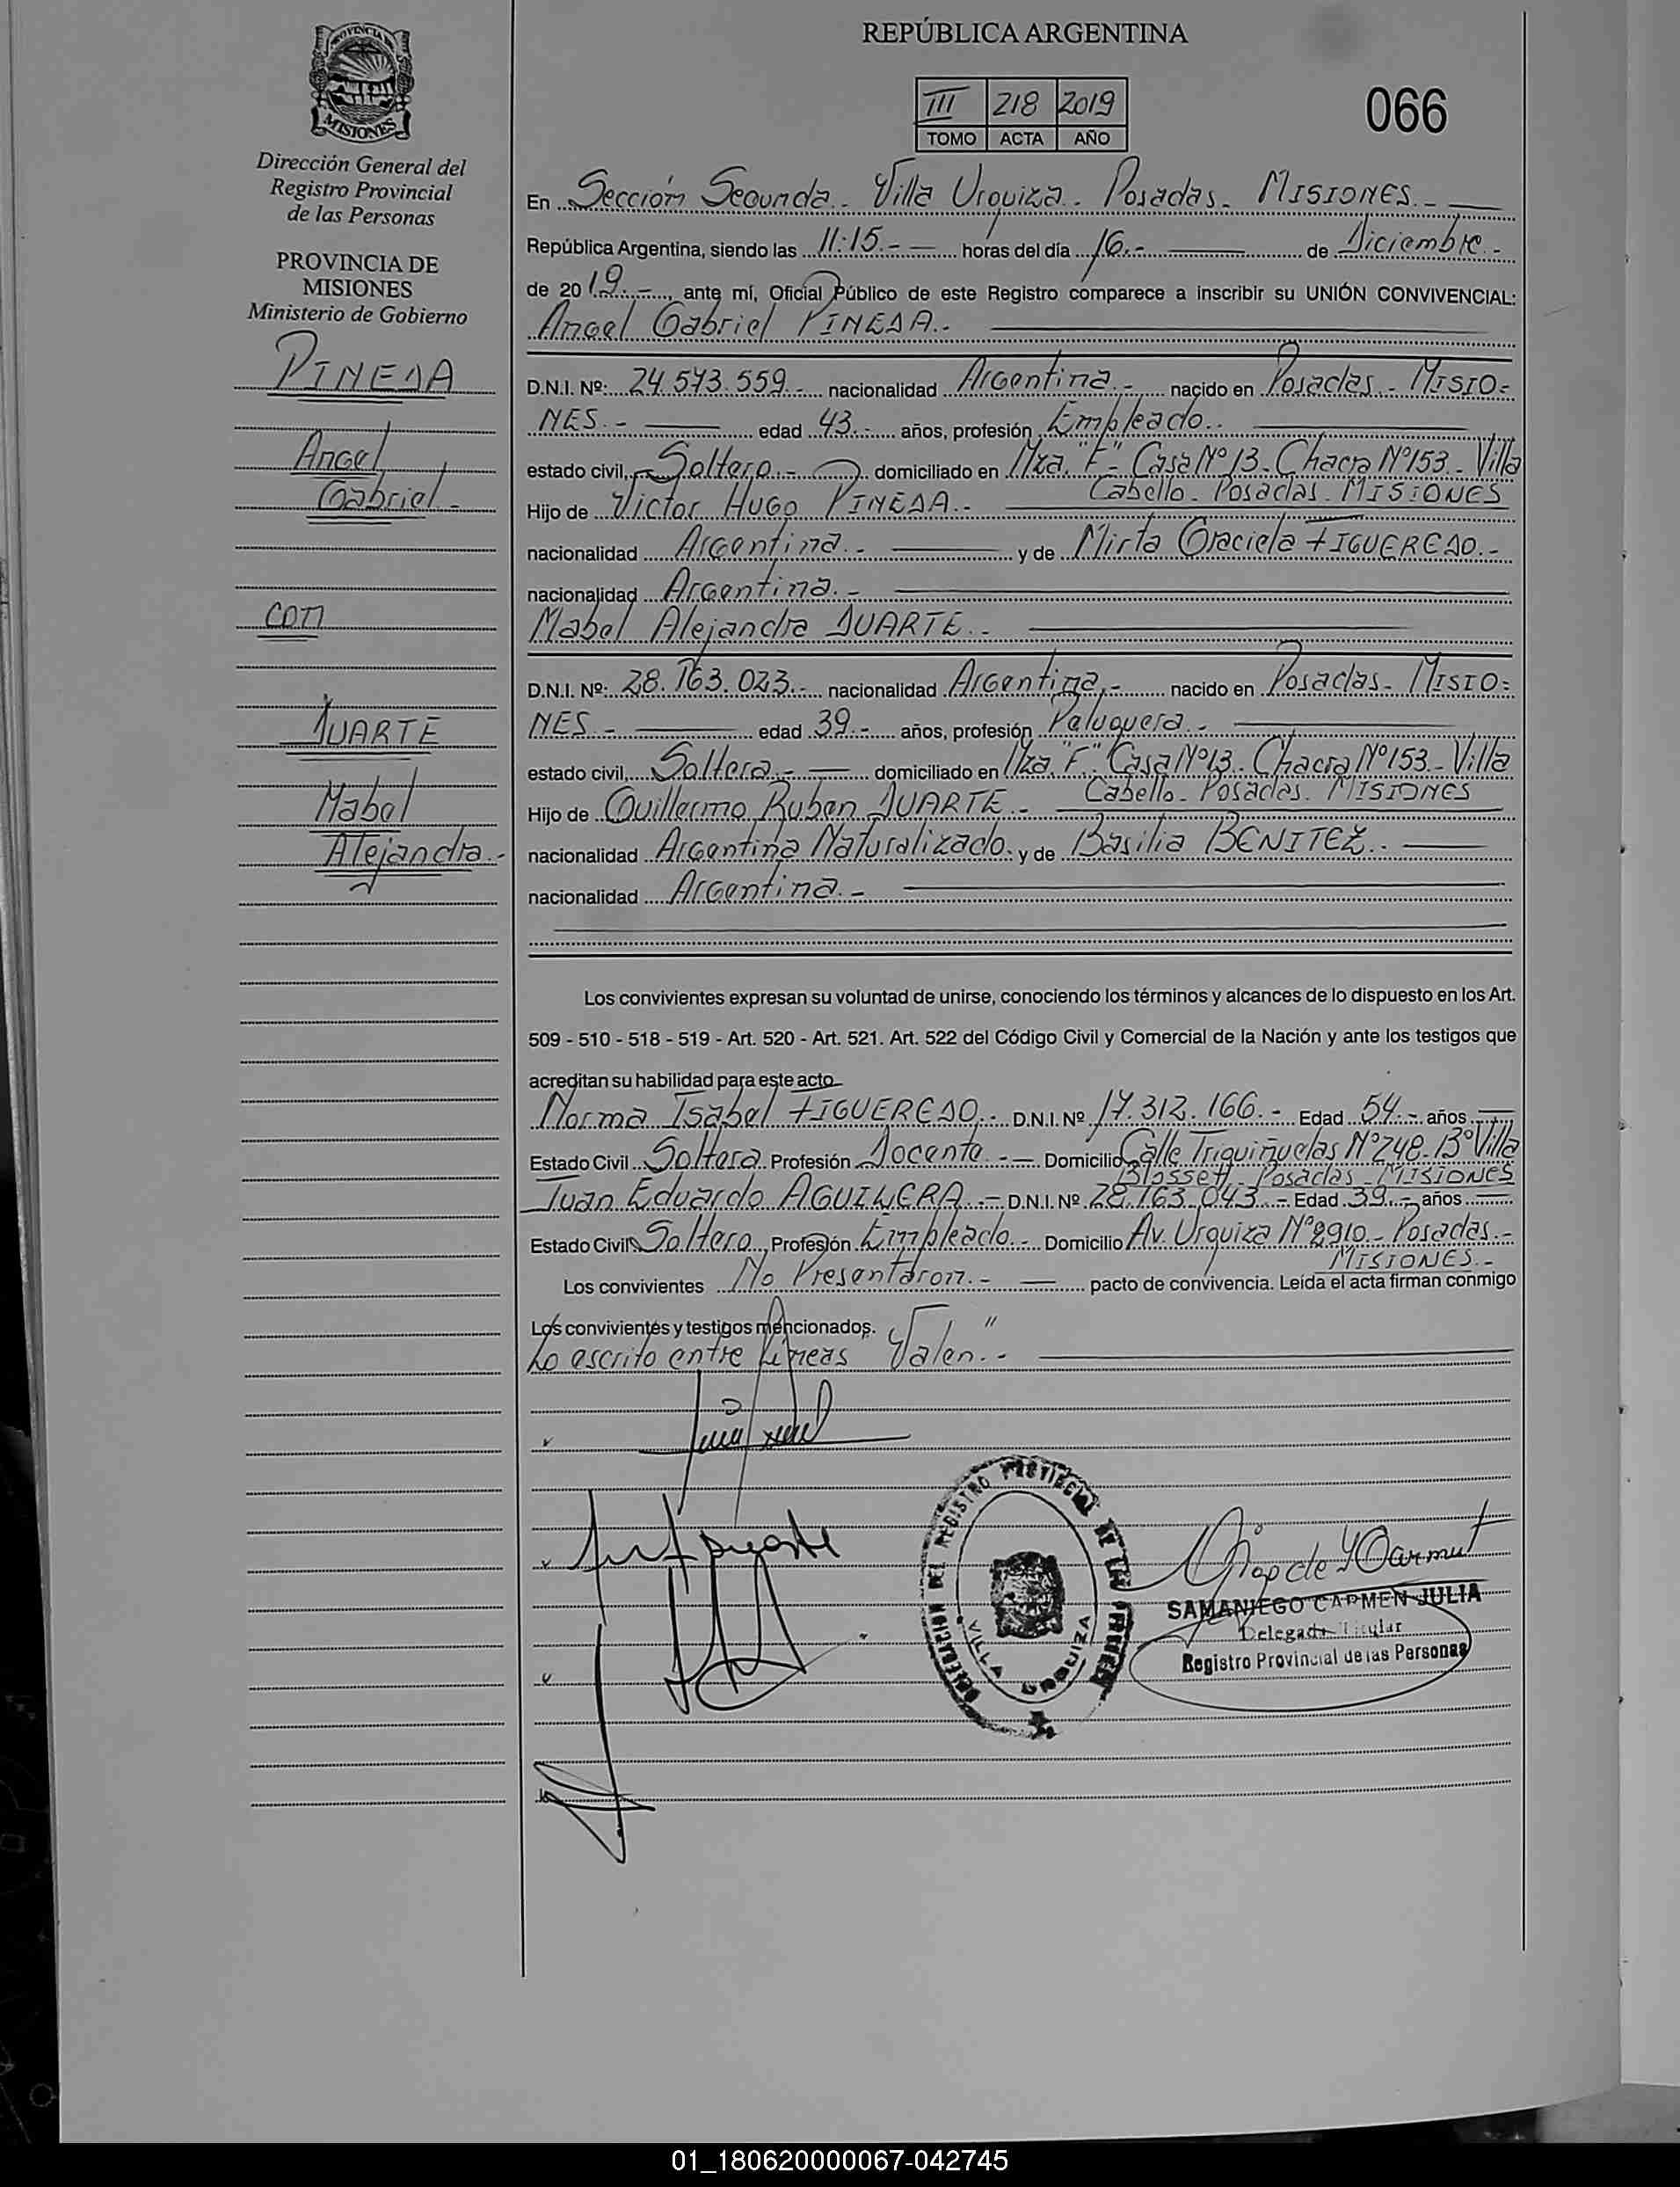 PROVINCIA DE
MISIONES
Dirección General del
Registro Provincial
de las Personas
PROVINCIA DE
MISIONES
Ministerio de Gobierno
PINEDA
Angel
Gabriel.-
con
DUARTE
Mabel
Alejandra.-
REPÚBLICA ARGENTINA
III 218 2019
TOMO ACTA AÑO
066
En Sección Segunda.- Villa Urquiza.- Posadas.- MISIONES.-
República Argentina, siendo las 11:15.- horas del día 16.- de Diciembre.-
de 2019.-, ante mí, Oficial Público de este Registro comparece a inscribir su UNIÓN CONVIVENCIAL:
Angel Gabriel PINEDA.-
D.N.I. Nº: 24.573.559.- nacionalidad Argentina.- nacido en Posadas.- MISIO=
NES.- edad 43.- años, profesión Empleado.-
estado civil, Soltero.- domiciliado en Mza. "F" Casa Nº 13.- Chacra Nº153.- Villa
Cabello.- Posadas.- MISIONES
Hijo de Victor Hugo PINEDA.-
nacionalidad Argentina.- y de Mirta Graciela FIGUEREDO.-
nacionalidad Argentina.-
Mabel Alejandra DUARTE.-
D.N.I. Nº: 28.163.023.- nacionalidad Argentina.- nacido en Posadas.- MISIO=
NES.- edad 39.- años, profesión Peluquera.-
estado civil, Soltera.- domiciliado en Mza. "F" Casa Nº13.- Chacra Nº153.- Villa
Cabello.- Posadas.- MISIONES
Hijo de Guillermo Ruben DUARTE.-
nacionalidad Argentina Naturalizado. y de Basilia BENITEZ.-
nacionalidad Argentina.-
Los convivientes expresan su voluntad de unirse, conociendo los términos y alcances de lo dispuesto en los Art.
509 - 510 - 518 - 519 - Art. 520 - Art. 521. Art. 522 del Código Civil y Comercial de la Nación y ante los testigos que
acreditan su habilidad para este acto
Norma Isabel FIGUEREDO.- D.N.I. Nº 17.312.166.- Edad 54.- años
Estado Civil Soltera Profesión Docente.- Domicilio Calle Triquiñuelas Nº248.- Bº Villa
Blosset.- Posadas.- MISIONES
Juan Eduardo AGUILERA.- D.N.I. Nº 28.163.043.- Edad 39.- años
Estado Civil Soltero Profesión Empleado.- Domicilio Av. Urquiza Nº 2910.- Posadas.-
MISIONES.-
Los convivientes No Presentaron.- pacto de convivencia. Leída el acta firman conmigo
Los convivientes y testigos mencionados.
Lo escrito entre líneas "Valen".-
DELEGACION DEL REGISTRO PROVINCIAL DE LAS PERSONAS
VILLA URQUIZA
SAMANIEGO CARMEN JULIA
Delegada Titular
Registro Provincial de las Personas
01_180620000067-042745